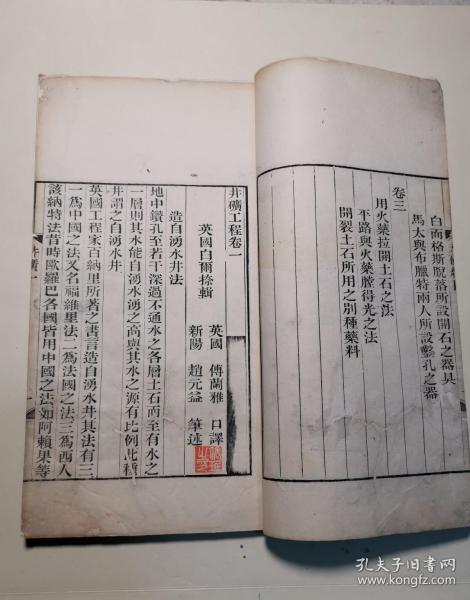 白而格斯脫落所設開石之器具
馬太與布臘特兩人所設鑿孔之器
卷三
用火藥拉開土石之法
平路與火藥膛得光之法
開裂土石所用之別種藥料
井礦工程卷一
英國白爾捺輯
英國 傅蘭雅 口譯
新陽 趙元益 筆述
造自湧水井法
地中鑽孔至若干深過不通水之各層土石而至有水之
一層則其水能自湧水湧之高與其水之源有比例此種
井謂之自湧水井
英國工程家百納里所著之書言造自湧水井其法有三
一為中國之法又名福維里法二為法國之法三為西人
該納特法昔時歐羅巴各國皆用中國之法如阿賴果等
孔夫子旧书网
www.kongfz.com